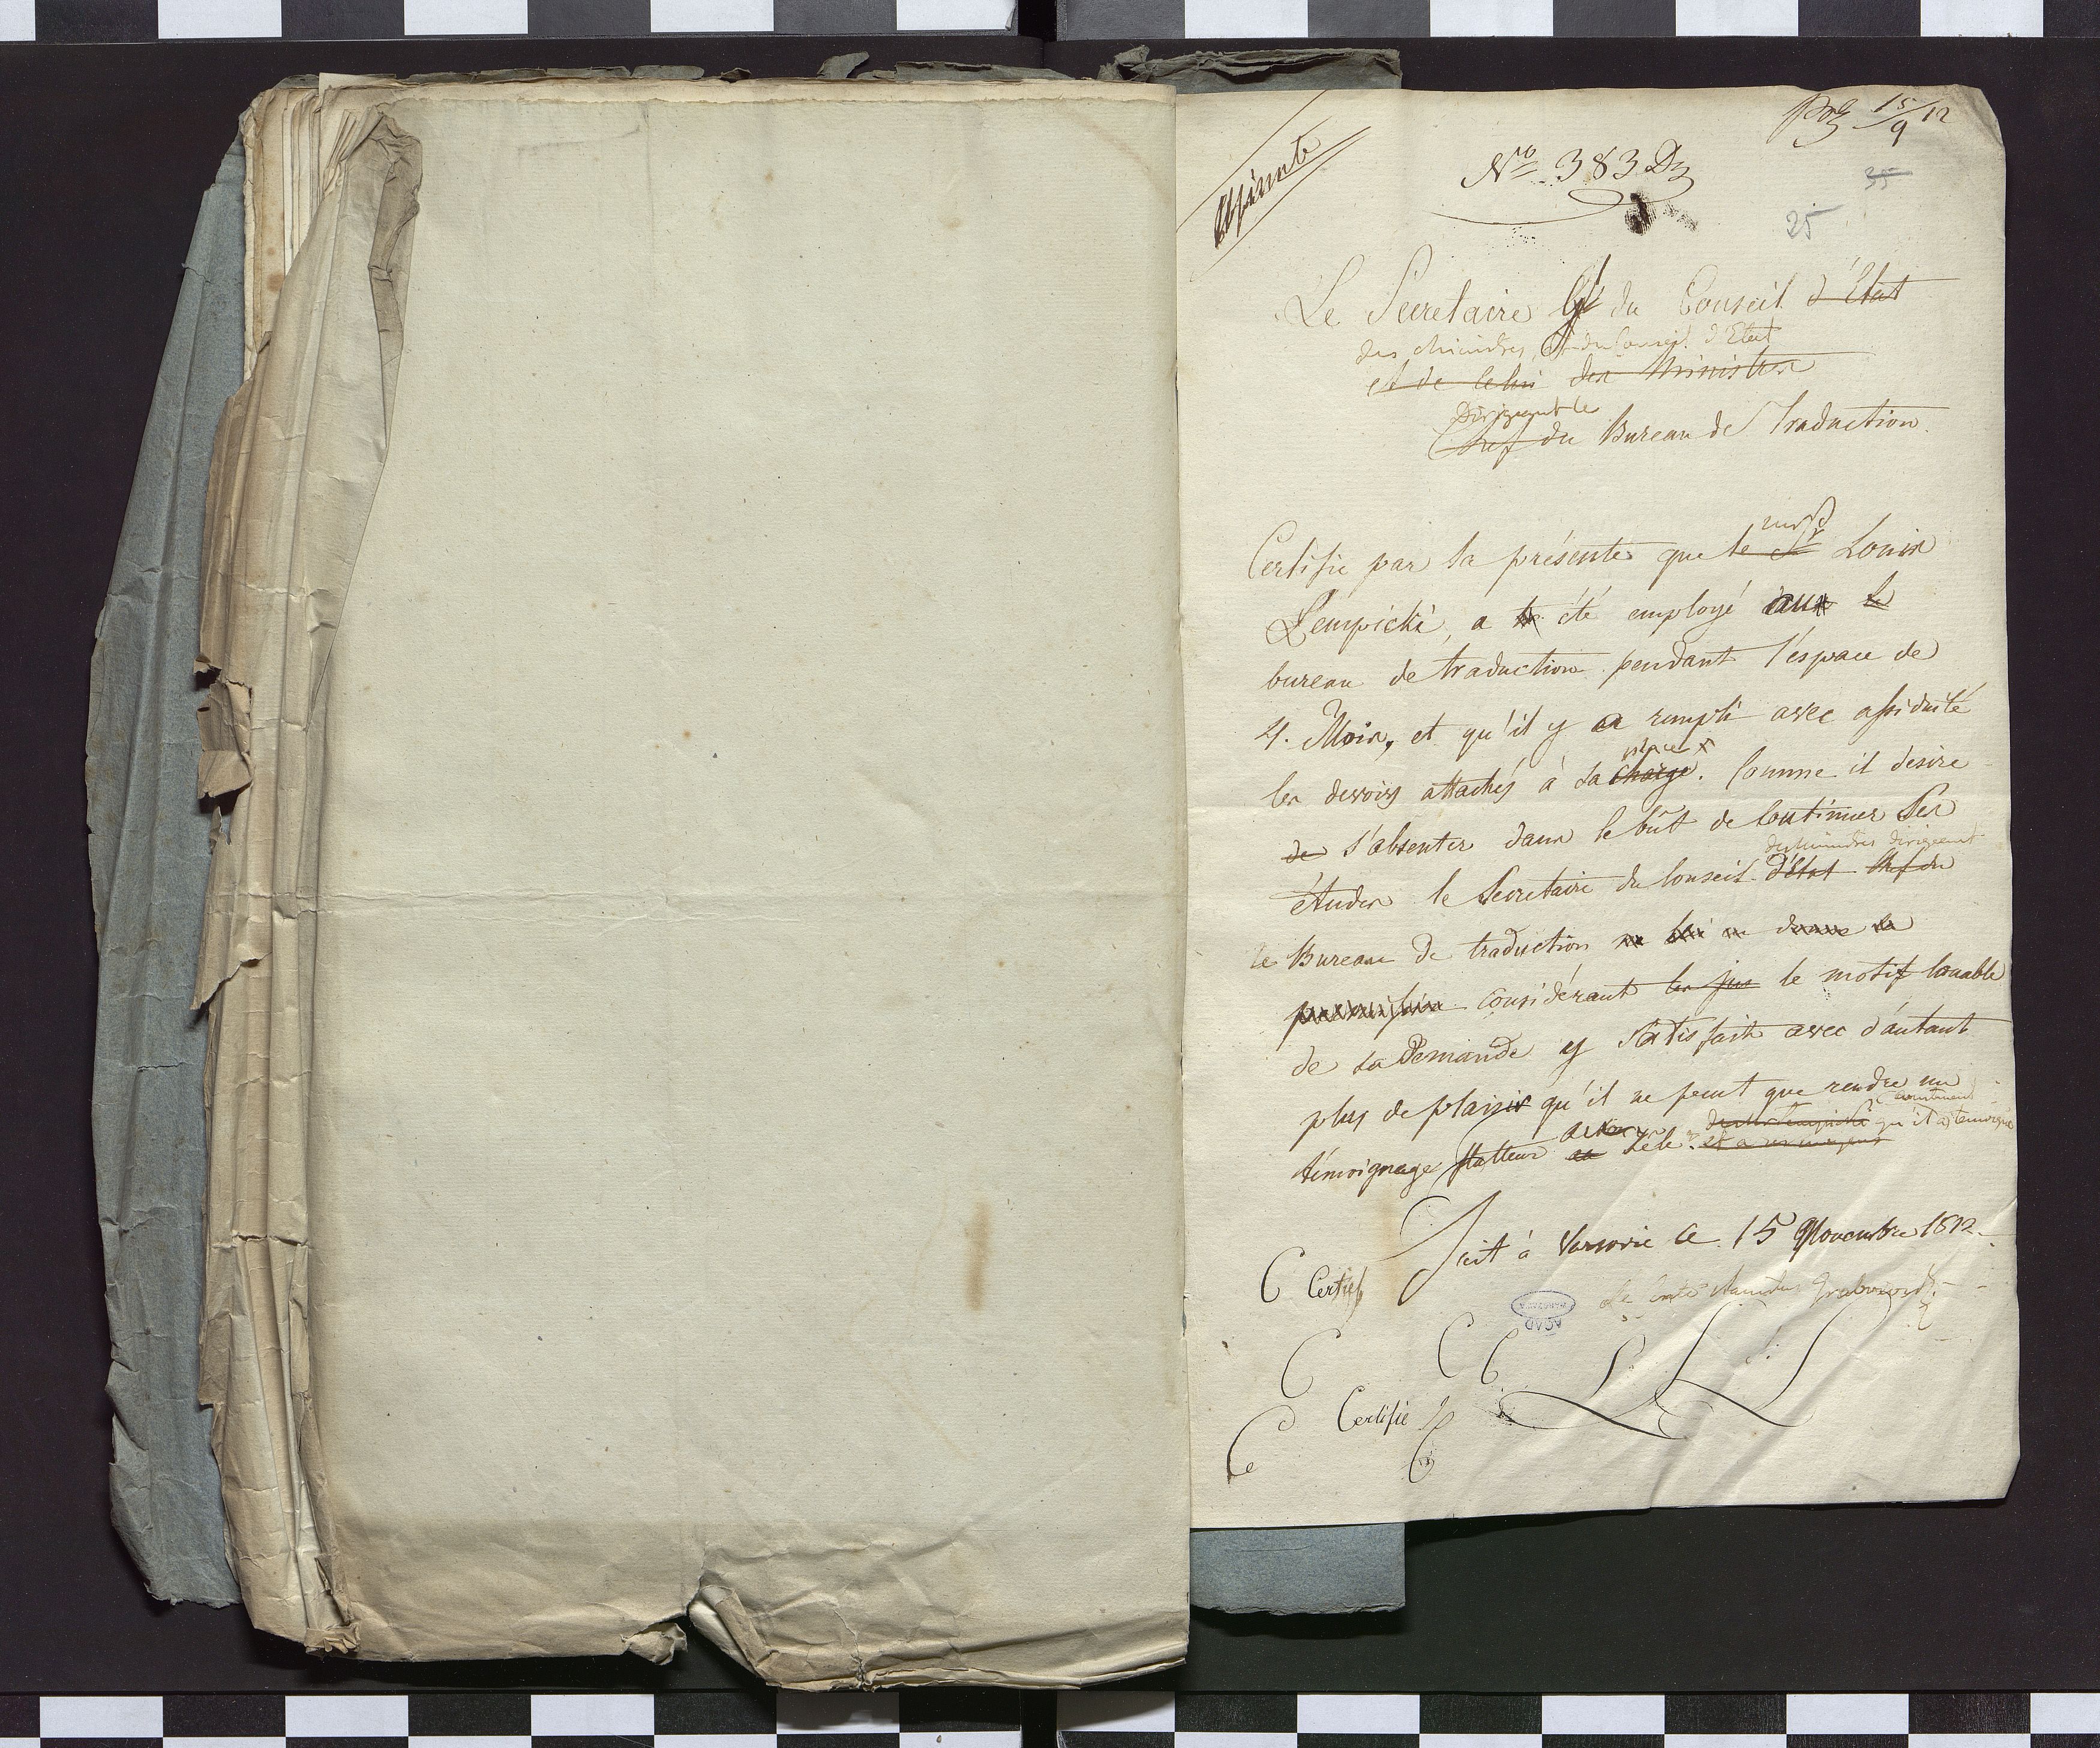 15/9 12
Nro 383 Dz
35
25
Le Secretaire Gl du Conseil d'Etat
des Ministres, et du Conseil d'Etat
et de celui des Ministres
Dirigeant le
Chef du Bureau de Traduction.
Certifie par la présente que le Sr Louis
Łempicki, a été employé au
bureau de traduction pendant l'éspace de
4. Mois, et qu'il y a rempli avec assiduité
place
les devoirs attachés à sa charge. Comme il desire
de s'absenter dans le bût de Continuer Ses
des Ministres dirigeant
études le Secretaire du Conseil d'Etat Chef du
le Bureau de traduction
permission considérant le motif louable
de sa Demande y satisfait avec d'autant
plus de plaisir qu'il ne peut que rendre un
témoignage flatteur au zèle qu'il a temoigné
Fait à Varsovie le 15 Novembre 1812.
Certif
Le Grabowski
AGAD
Certifie